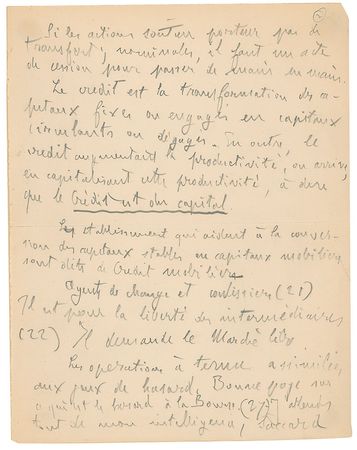 Si les actions sont au porteur pas de
transfert; nominales, il faut un acte
de cession pour passer de main en main.
Le credit est la transformation des ca-
pitaux fixes ou engagés en capitaux
circulants ou dégagés. En outre, le
credit augmentant la productivité, on arrive,
en capitalisant cette productivité, à dire
que le Crédit est du capital
Les etablissement qui aident à la conver-
sion des capitaux stables en capitaux mobiliers
sont dits de Credit mobilier
Agents de change et coulissiers (21)
Il est pour la liberté des intermédiaires
(22) Il demande le Marché libre
Les operations à terme assimilées
aux jeux de hasard. Bonne page sur
le hasard à la Bourse (27)
tout de mon intelligence, Saccard